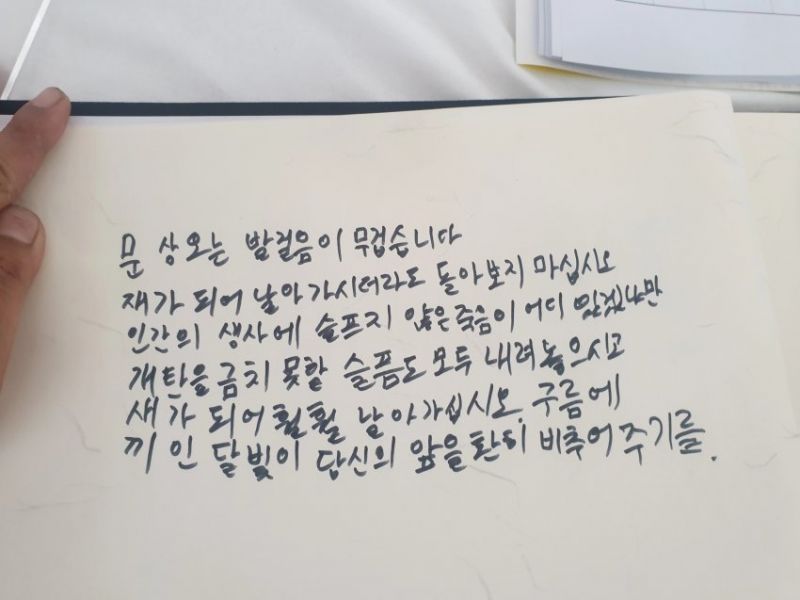 문상오는 발걸음이 무겁습니다
재가 되어 날아가시더라도 돌아보지 마십시오
인간의 생사에 슬프지 않은 죽음이 어디 있겠냐만
개탄을 금치 못할 슬픔도 모두 내려놓으시고
새가 되어 훨훨 날아가십시오. 구름에
끼인 달빛이 당신의 앞을 환히 비추어주기를.